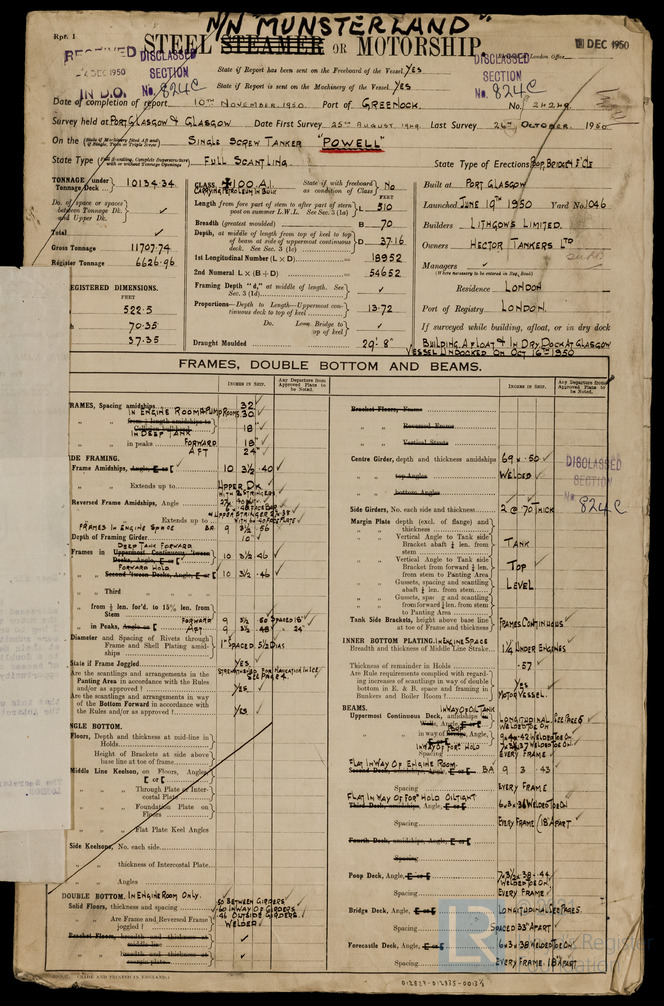 Rpt. 1
M/N MUNSTERLAND"
STEEL STEAMER OR MOTORSHIP.
RECEIVED
DEC 1950
IN D.O.
DISCLASSED
SECTION
No. 824C
DISCLASSED
SECTION
No. 824C
DEC 1950
State if Report has been sent on the Freeboard of the Vessel YES
State if Report is sent on the Machinery of the Vessel YES
Date of completion of report 10TH NOVEMBER 1950. Port of GREENOCK. No. 24249.
Survey held at PORT GLASGOW & GLASGOW Date First Survey 25TH AUGUST 1949. Last Survey 24TH OCTOBER 1950.
On the SINGLE SCREW TANKER "POWELL"
State Type FULL SCANTLING. State Type of Erections POOP, BRIDGE & F'CLE
TONNAGE under Tonnage Deck 10134.34
Do. of space or spaces between Tonnage Dk. and Upper Dk. ✓
Total ✓
Gross Tonnage 11707.74
Register Tonnage 6626.96
REGISTERED DIMENSIONS.
FEET
522.5
70.35
37.35
CLASS ✠100.A1. State if with freeboard as condition of Class No
CARRYING PETROLEUM IN BULK
FEET
Length from fore part of stem to after part of stern post on summer L.W.L. See Sec. 3 (1a) L 510
Breadth (greatest moulded) B 70
Depth, at middle of length from top of keel to top of beam at side of uppermost continuous deck. See Sec. 3 (1c) D 37.16
1st Longitudinal Number (L × D) 18952
2nd Numeral L × (B + D) 54652
Framing Depth "d," at middle of length. See Sec. 3 (1d) ✓
Proportions—Depth to Length—Uppermost continuous deck to top of keel 13.72
Do. Long Bridge to top of keel ✓
Draught Moulded 29'- 8"
Built at PORT GLASGOW
Launched JUNE 19TH 1950 Yard No. 1046
Builders LITHGOWS LIMITED.
Owners HECTOR TANKERS LTD
Managers ✓
(Where necessary to be entered in Reg. Book)
Residence LONDON
Port of Registry LONDON.
If surveyed while building, afloat, or in dry dock
BUILDING, AFLOAT & IN DRY DOCK AT GLASGOW
VESSEL UNDOCKED ON OCT 16TH 1950
FRAMES, DOUBLE BOTTOM AND BEAMS.
INCHES IN SHIP.
Any Departure from Approved Plans to be Noted.
INCHES IN SHIP.
Any Departure from Approved Plans to be Noted.
FRAMES, Spacing amidships 32 ✓
IN ENGINE ROOM & PUMP ROOMS 30
IN DEEP TANK 18" ✓
in peaks FORWARD 18" ✓
AFT 24"
SIDE FRAMING.
Frame Amidships, Angle, [ or [ 10 3½ .40 ✓
Extends up to UPPER DK.
WITH 2 STRINGERS
Reversed Frame Amidships, Angle
Extends up to
FRAMES IN ENGINE SPACE BA 9 3½ .56
Depth of Framing Girder 10" ✓
DEEP TANK FORWARD
Frames in Uppermost Continuous 'tween Decks, Angle, [ or [ 10 3½ .46 ✓
FORWARD HOLD
Second 'tween Decks, Angle, [ or [ 10 3½ .46 ✓
Third
from ⅕ len. for'd. to 15% len. from Stem
in Peaks, Angle or [ FORWARD 9 3½ .50 SPACED 18" ✓
AFT 9 3½ .48 " 24"
Diameter and Spacing of Rivets through Frame and Shell Plating amidships 1" SPACED 5½ DIAS
State if Frame Joggled YES.
STRENGTHENED FOR NAVIGATION IN ICE
SEE PAGE 4.
Are the scantlings and arrangements in the Panting Area in accordance with the Rules and/or as approved? YES ✓
Are the scantlings and arrangements in way of the Bottom Forward in accordance with the Rules and/or as approved? YES ✓
SINGLE BOTTOM.
Floors, Depth and thickness at mid-line in Holds
Height of Brackets at side above base line at toe of frame
Middle Line Keelson, on Floors, Angles, [ or [
Through Plate or Intercostal Plate
Foundation Plate on Floors
Flat Plate Keel Angles
Side Keelsons, No. each side
thickness of Intercostal Plate
Angles
DOUBLE BOTTOM. IN ENGINE ROOM ONLY.
Solid Floors, thickness and spacing
.50 BETWEEN GIRDERS
.60 IN WAY OF GIRDERS
.46 OUTSIDE GIRDERS.
Are Frame and Reversed Frame joggled? WELDED ✓
Bracket Floors, breadth and thickness at middle line ✓
breadth and thickness at margin plate ✓
Bracket Floors, Frame
Reversed Frame
Vertical Struts
Centre Girder, depth and thickness amidships 69 × .50 ✓
top Angles WELDED ✓
bottom Angles
Side Girders, No. each side and thickness 2 @ .70 THICK
Margin Plate depth (excl. of flange) and thickness
Vertical Angle to Tank side Bracket abaft ¼ len. from stem TANK
Vertical Angle to Tank side Bracket from forward ¼ len. from stem to Panting Area TOP
Gussets, spacing and scantling abaft ¼ len. from stem LEVEL
Gussets, spacing and scantling from forward ¼ len. from stem to Panting Area
Tank Side Brackets, height above base line at toe of Frame and thickness FRAMES CONTINUOUS
INNER BOTTOM PLATING. IN ENGINE SPACE
Breadth and thickness of Middle Line Strake 1¼ UNDER ENGINES
Thickness of remainder in Holds .57 ✓
Are Rule requirements complied with regarding increases of scantlings in way of double bottom in E. & B. space and framing in Bunkers and Boiler Room? YES ✓
MOTOR VESSEL.
BEAMS. IN WAY OF OIL TANK
Uppermost Continuous Deck, amidships LONGITUDINAL, SEE PAGE 5
IN WAY OF FOR'D HOLD
EVERY FRAME ✓
FLAT IN WAY OF ENGINE ROOM.
Second Deck, amidships, Angle, [ or [ BA 9 3 .43
Spacing EVERY FRAME ✓
FLAT IN WAY OF FOR'D HOLD OILTIGHT
Third Deck, amidships, Angle, [ or [ 6 × 3 × .38 WELDED TOE ON
Spacing EVERY FRAME (18" APART ✓
Fourth Deck, amidships, Angle, [ or [
Spacing
Poop Deck, Angle, [ or [ 7 × 3½ × .38 - .44
WELDED TOE ON.
Spacing EVERY FRAME ✓
Bridge Deck, Angle, [ or [ LONGITUDINAL SEE PAGE 5.
Spacing SPACED 33" APART ✓
Forecastle Deck, Angle, [ or [ 6 × 3 × .38 WELDED TOE ON.
Spacing EVERY FRAME 18" APART
DISCLASSED
SECTION
No. 824C
(MADE AND PRINTED IN ENGLAND.)
LR
012827-012835-0013½